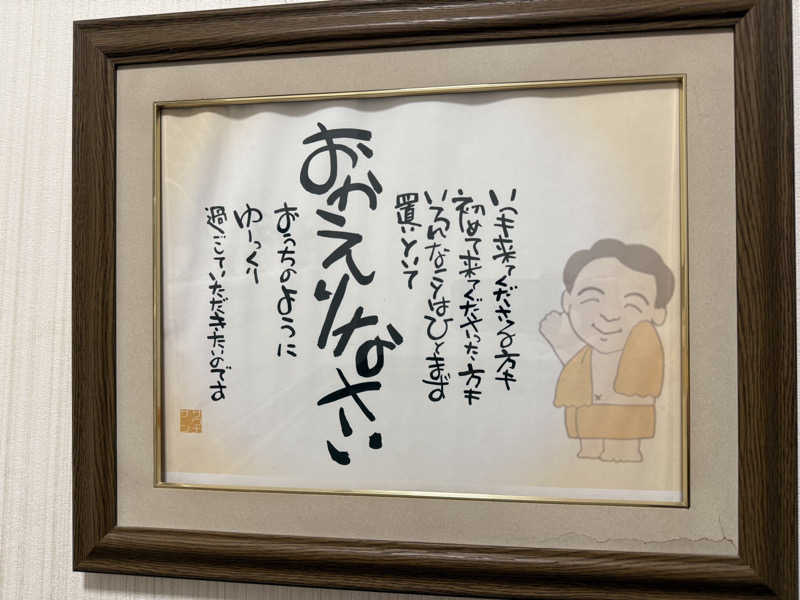 いつも来てくださってる方も
初めて来てくださった方も
いろんなことはひとまず
置いといて
おかえりなさい
おうちのように
ゆーっくり
過ごしていただきたいのです